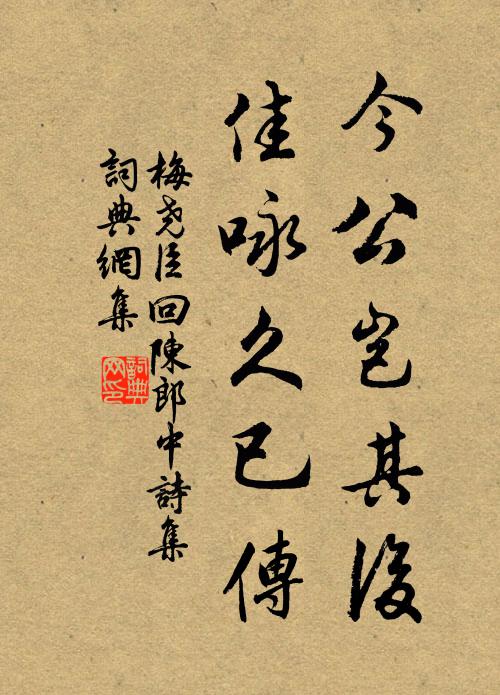 今公豈其後
佳咏久已傳
梅堯臣回陳郎中詩集
詞典網集
詞典网印